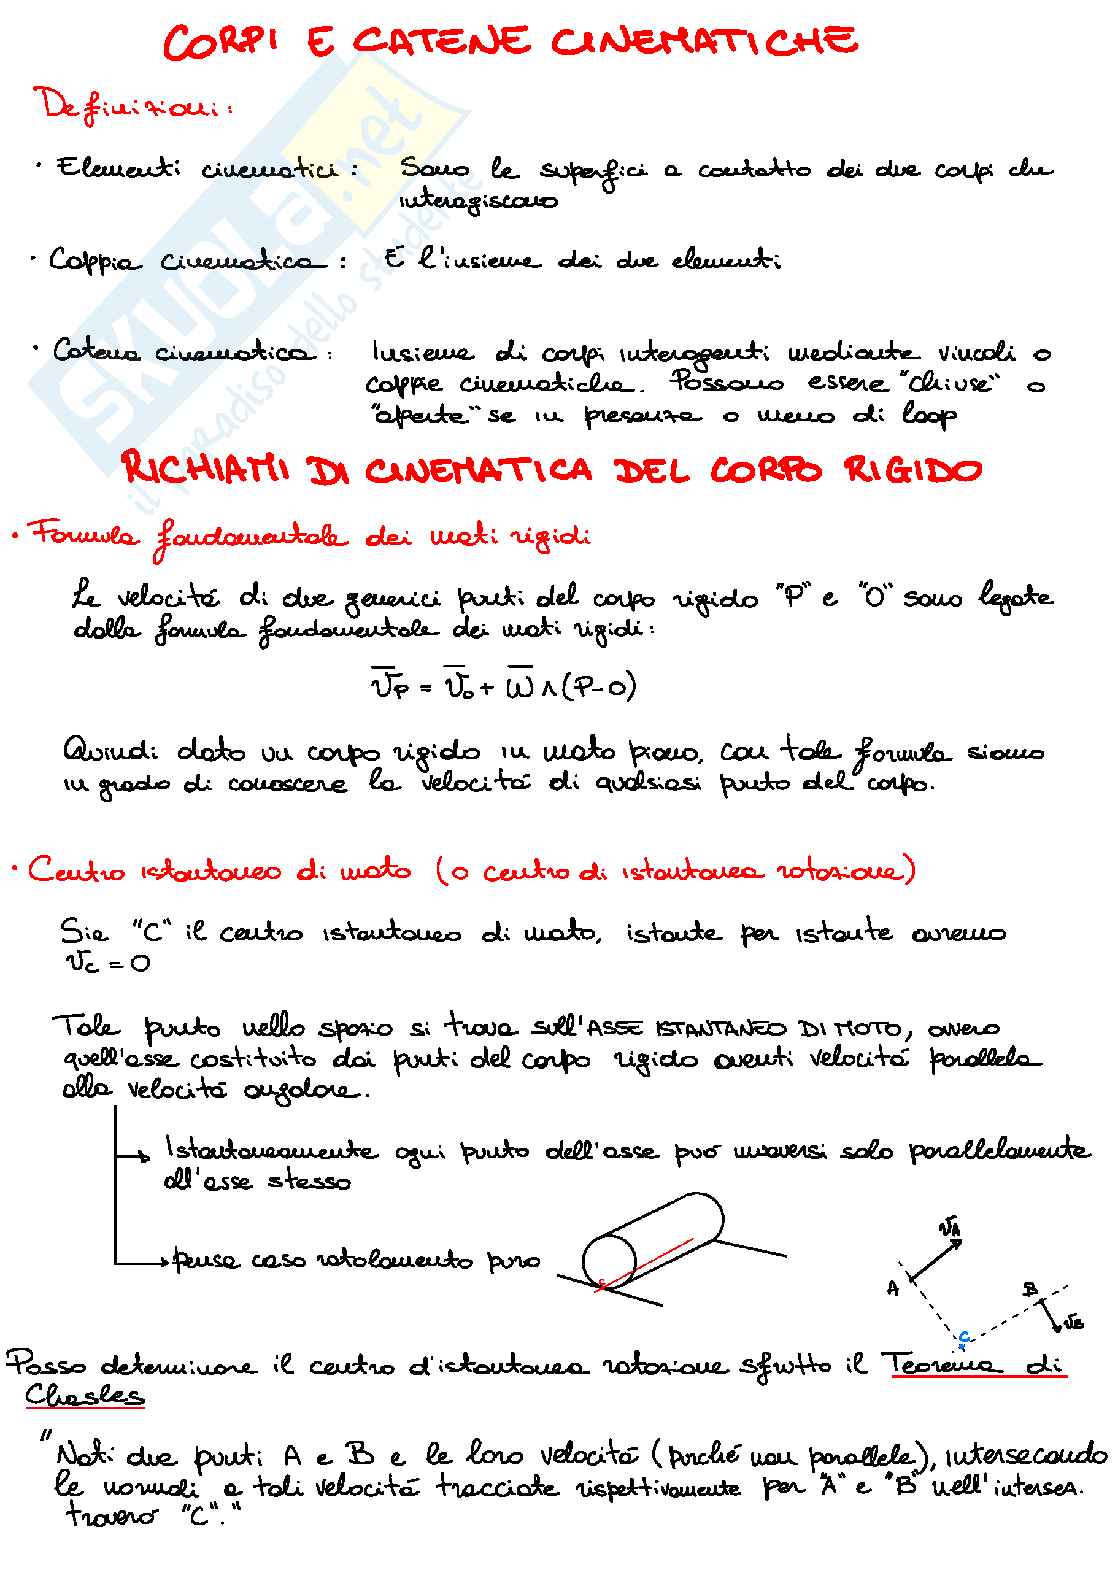 CORPI E CATENE CINEMATICHE
Definizioni:
· Elementi cinematici : Sono le superfici a contatto dei due corpi che
interagiscono
· Coppia cinematica : È l'insieme dei due elementi
· Catena cinematica : Insieme di corpi interagenti mediante vincoli o
coppie cinematiche. Possono essere "chiuse" o
"aperte" se in presenza o meno di loop
RICHIAMI DI CINEMATICA DEL CORPO RIGIDO
· Formula fondamentale dei moti rigidi
Le velocitá di due generici punti del corpo rigido "P" e "O" sono legate
dalla formula fondamentale dei moti rigidi:
v̅P = v̅o + ω̅ ∧ (P-O)
Quindi dato un corpo rigido in moto piano, con tale formula siamo
in grado di conoscere la velocitá di qualsiasi punto del corpo.
· Centro istantaneo di moto (o centro di istantanea rotazione)
Sia "C" il centro istantaneo di moto, istante per istante avremo
vc = 0
Tale punto nello spazio si trova sull'ASSE ISTANTANEO DI MOTO, ovvero
quell'asse costituito dai punti del corpo rigido aventi velocitá parallela
alla velocitá angolare.
Istantaneamente ogni punto dell'asse puó muoversi solo parallelamente
all'asse stesso
pensa caso rotolamento puro
c
vA
A
B
vB
C
Posso determinare il centro d'istantanea rotazione sfrutto il Teorema di
Chasles
"Noti due punti A e B e le loro velocitá (purché non parallele), intersecando
le normali a tali velocitá tracciate rispettivamente per "A" e "B" nell'intersez.
troveró "C"."
SKUOLA.net
il paradiso dello studente